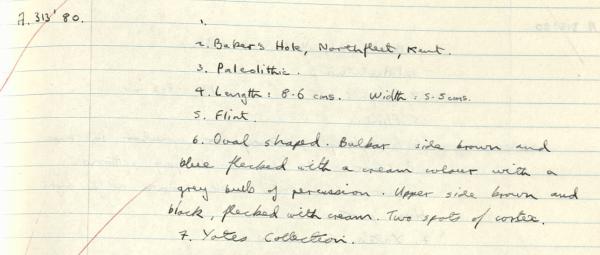 A. 313' 80.
1.
2. Baker's Hole, Northfleet, Kent.
3. Paleolithic.
4. Length: 8.6 cms. Width: 5.5 cms.
5. Flint.
6. Oval shaped. Bulbar side brown and
blue flecked with a cream colour with a
grey bulb of percussion. Upper side brown and
black, flecked with cream. Two spots of cortex.
7. Yates Collection.